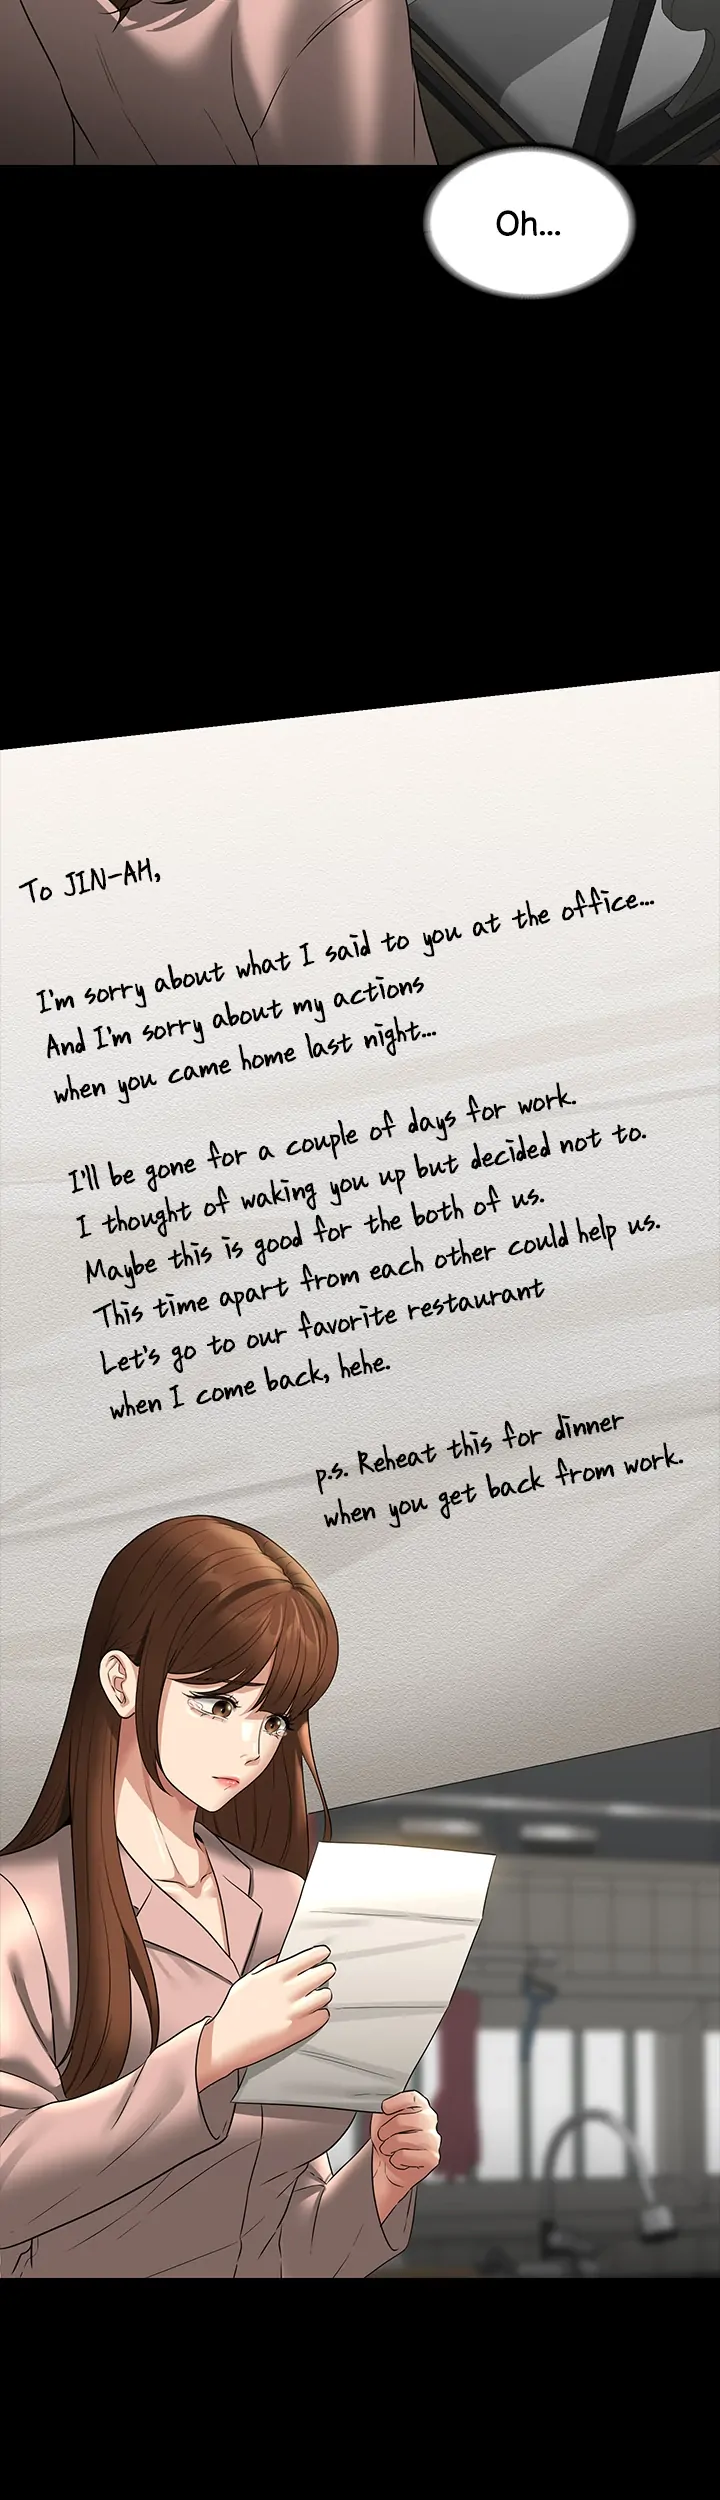 Oh...
To JIN-AH,
I'm sorry about what I said to you at the office...
And I'm sorry about my actions
when you came home last night...
I'll be gone for a couple of days for work.
I thought of waking you up but decided not to.
Maybe this is good for the both of us.
This time apart from each other could help us.
Let's go to our favorite restaurant
when I come back, hehe.
p.s. Reheat this for dinner
when you get back from work.